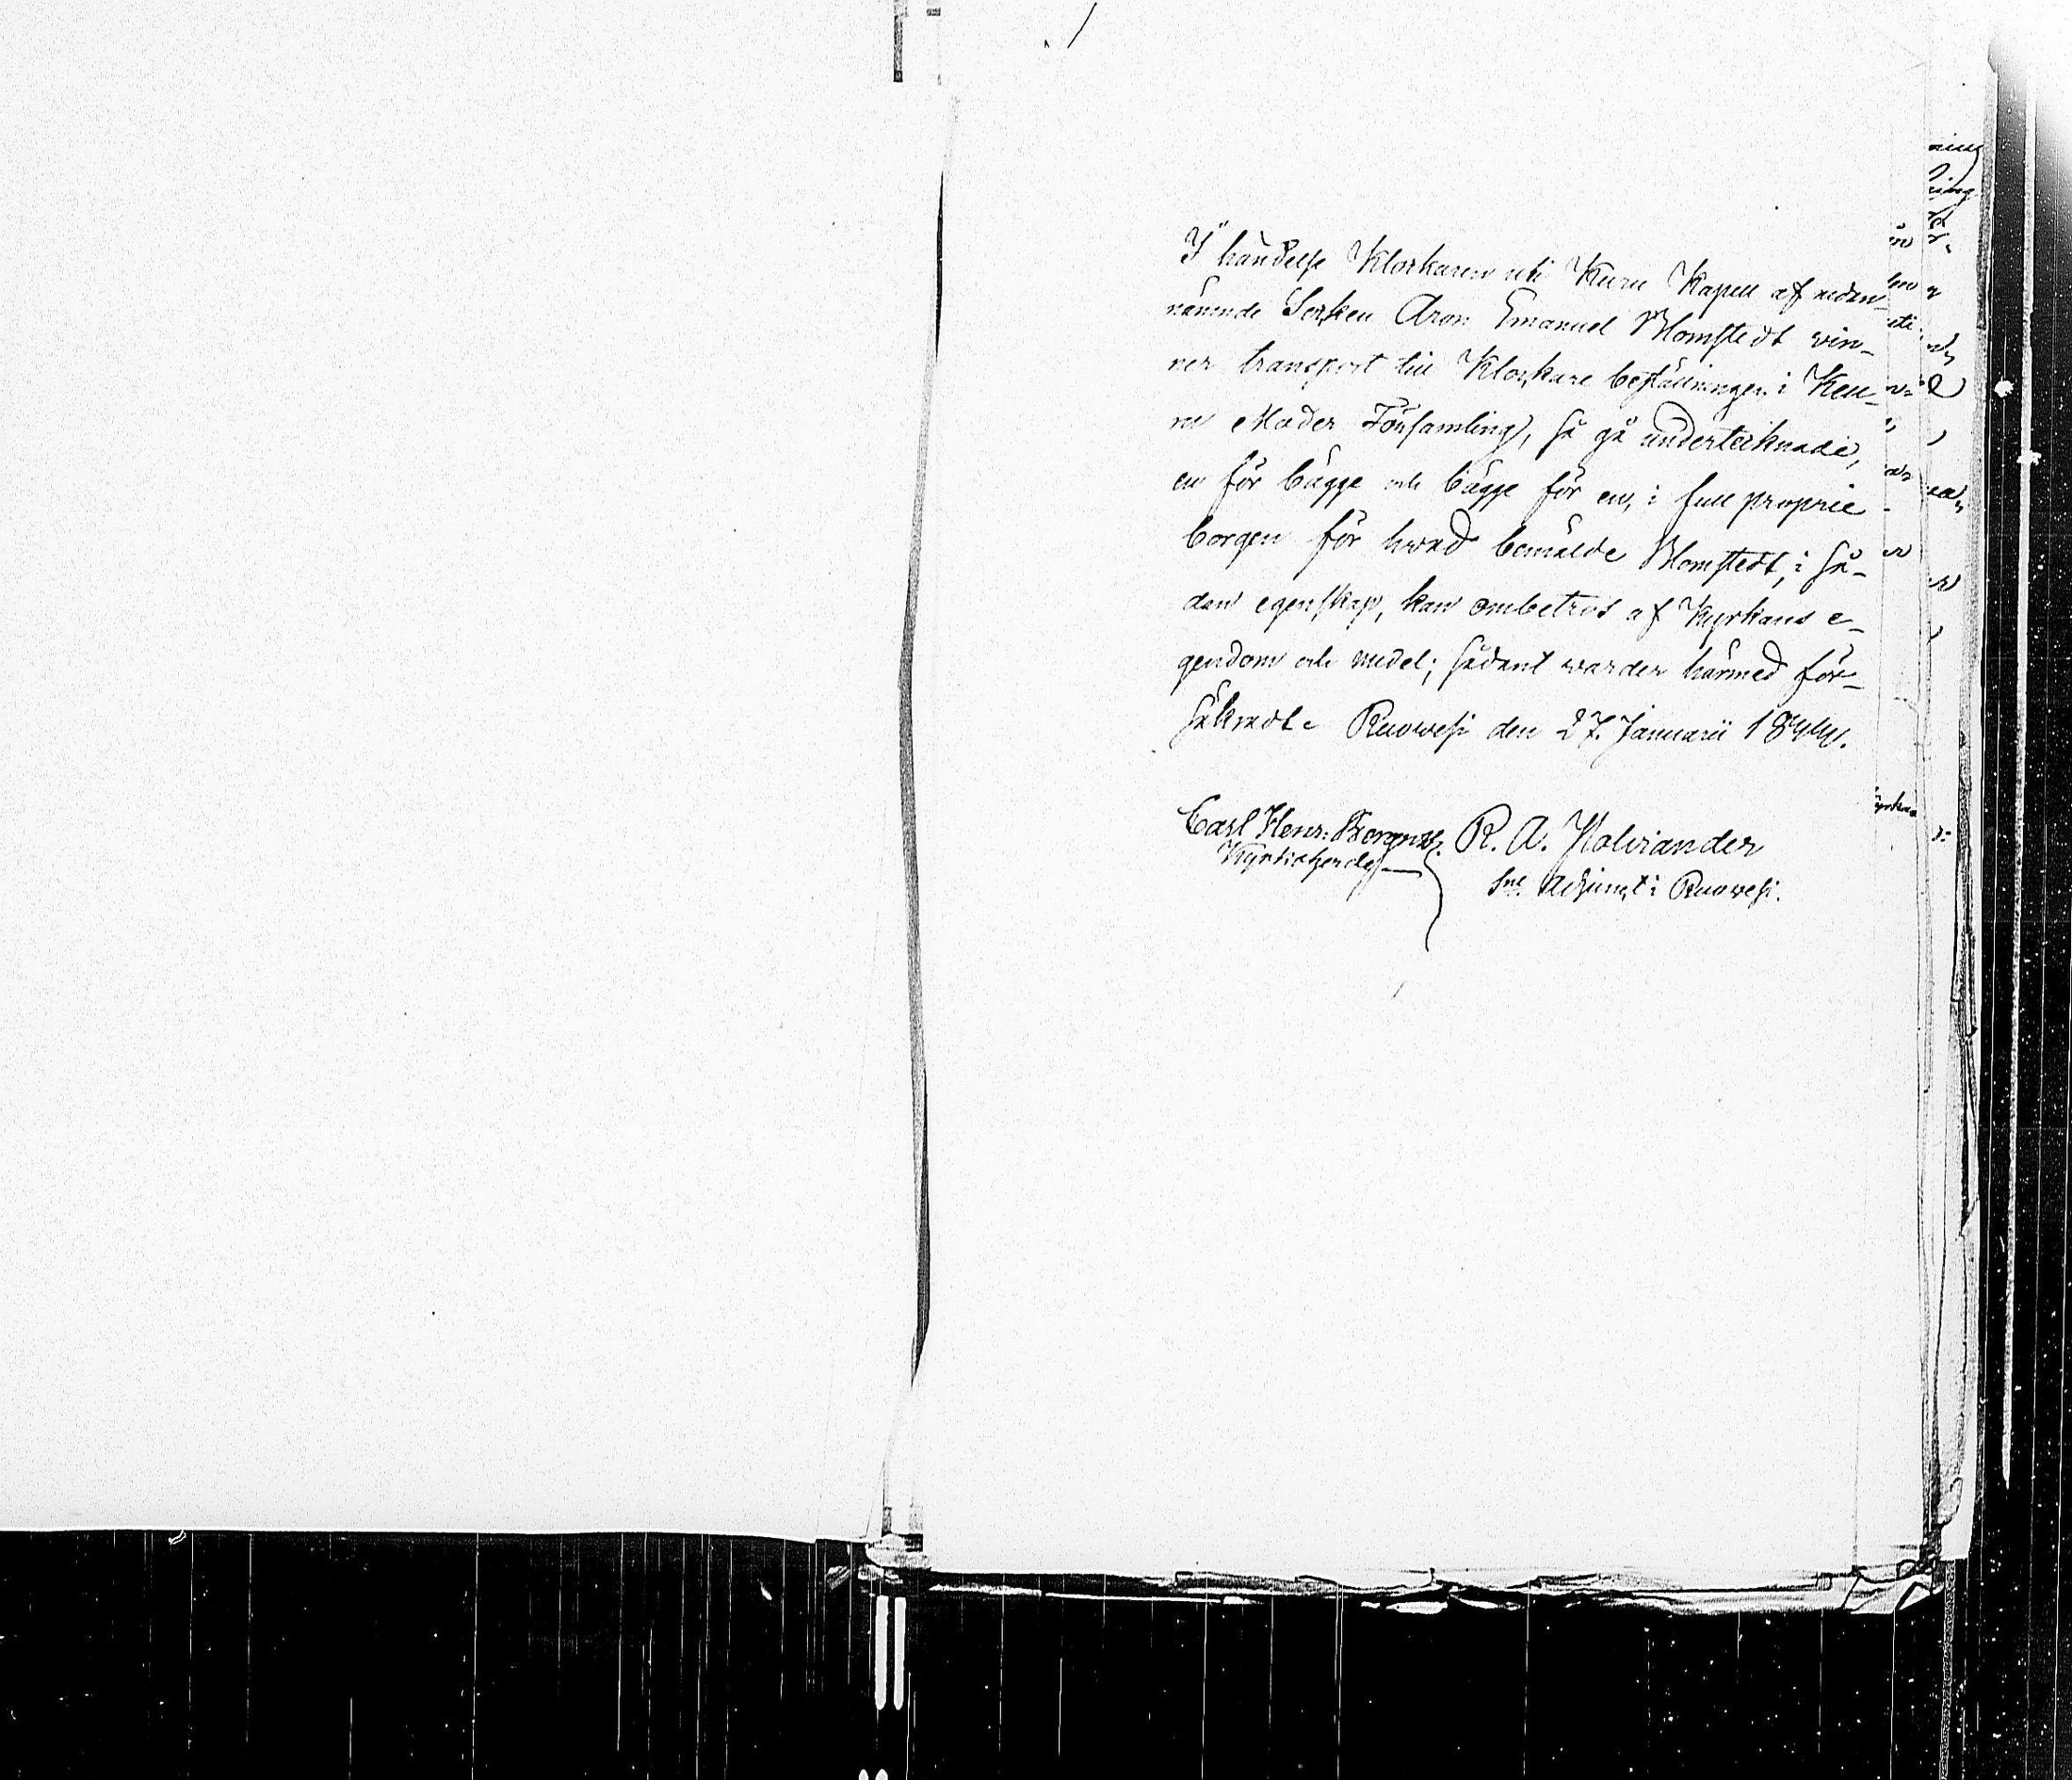 I händelse Klockaren uti Kuru Kapell af nedan-
nämnde Socken Aron Emanuel Blomstedt vin-
ner transport till Klockare beställningen i Keu-
ru Moder Församling, så gå undertecknade,
en för bägge och bägge för en, i full proprie
borgen för hwad bemälde Blomstedt, i så-
dan egenskap, kan ombetros af Kyrkans e-
gendom och medel; sådant warder härmed för-
säkradt. Ruowesi den 27. Januarii 1844.
Carl Henr: Bergroth. R. A. Holviander
Kyrkoherde Sne Adjunct i Ruowesi.